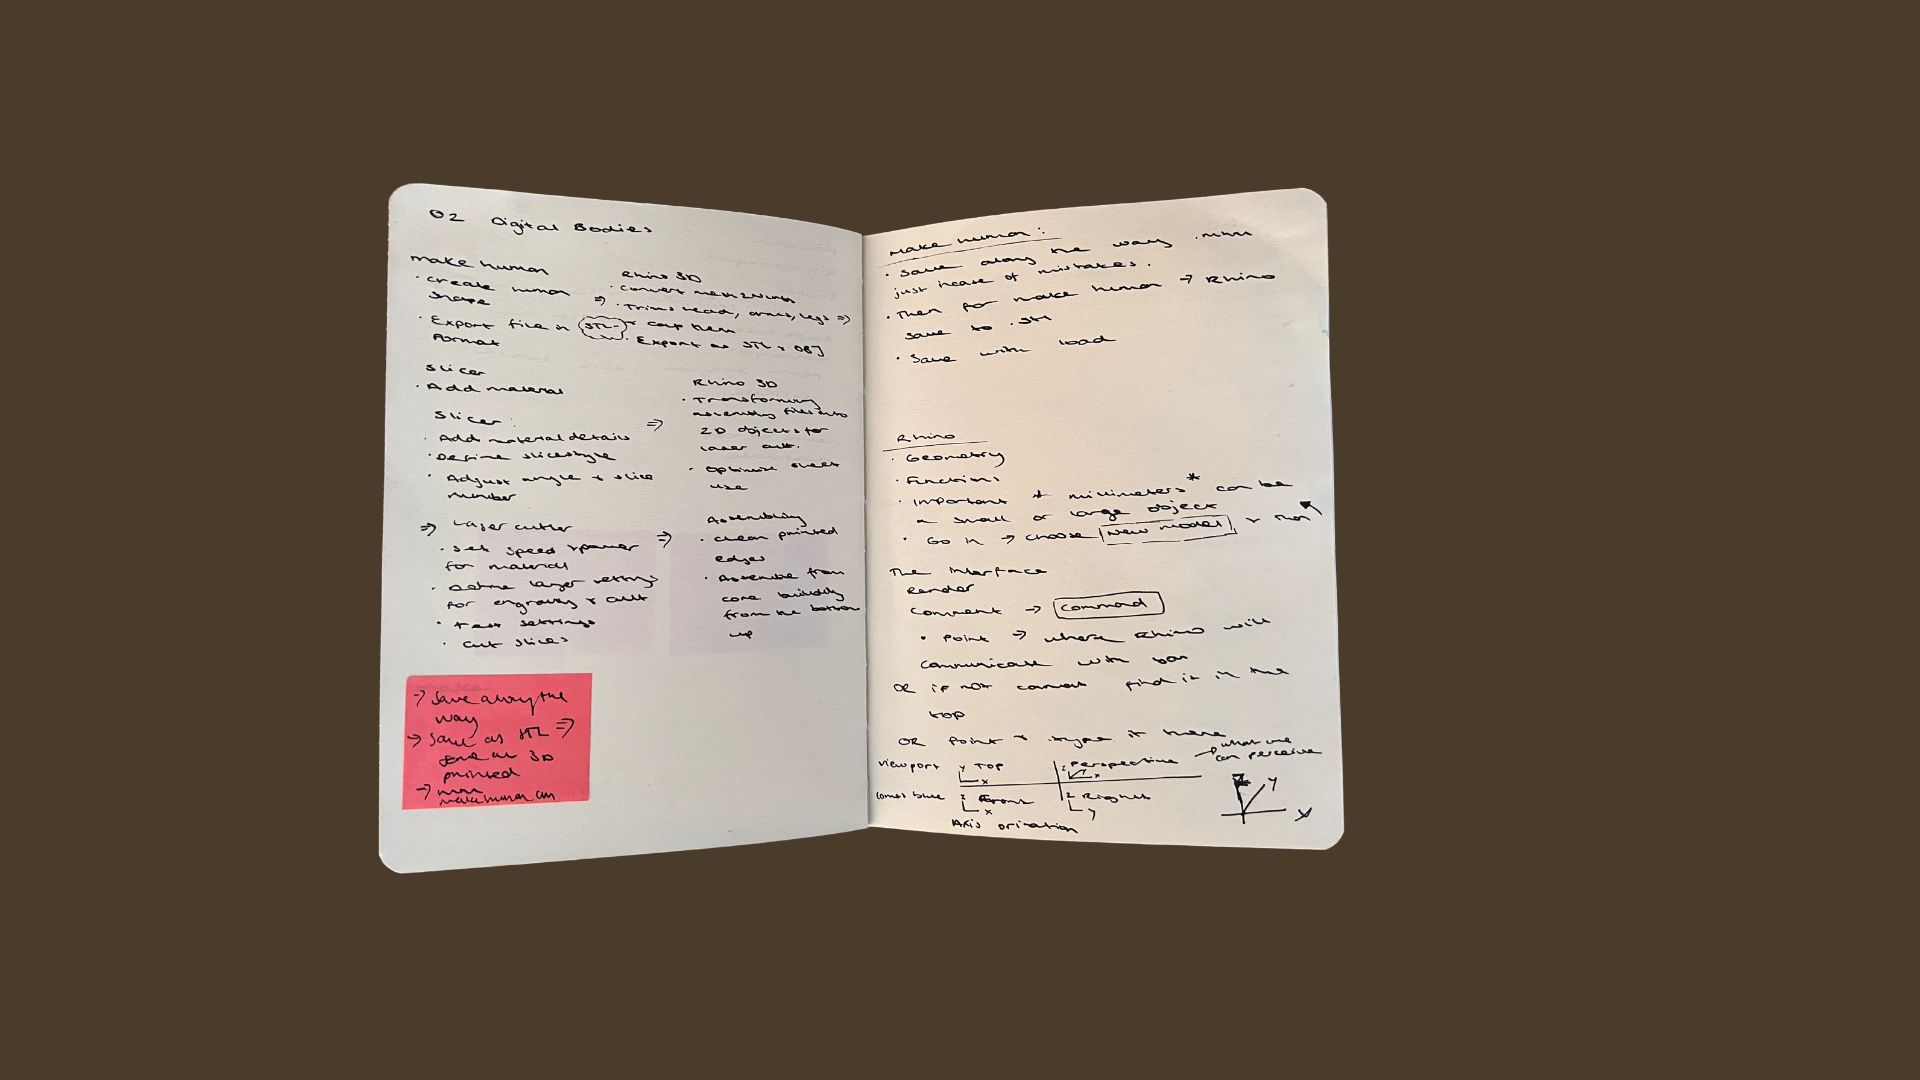 02 Digital Bodies
make human
• create human
shape
• Export file in STL
Format
Rhino 3D
• convert mesh 2 Nurbs
⇒ • Trims head, arms, legs ⇒
+ cap them
• Export as STL + OBJ
Slicer
• Add material
Slicer:
• Add material details
• Define slicestyle
• Adjust angle + slice
number
Rhino 3D
• Transforming
⇒ assembly files into
2D objects for
laser cutt.
• Optimise sheet
use
⇒ Laser cutter
• Set speed + power
for material
• Define layer settings
for engraving + cutt
• Test settings
• Cut slices
⇒ Assembling
• Clean printed
edges
• Assemble from
core building
from the bottom
up
→ Save along the
way
→ Save as STL ⇒
3D
printed
→ make human
Make human:
• Save along the way
just incase of mistakes.
• Then for make human → Rhino
save to .stl
• Save with load
Rhino
• Geometry
• Functions
• important * millimeters* can be
a small or large object
• Go in → choose New model, +
The interface
Render
Comment → Command
• Point → where Rhino will
communicate with
OR if not cannot find it in the
top
OR point + type it here
viewport y Top x z Perspective x → what we
can perceive
z Front x z Right y
z y x
Axis orination